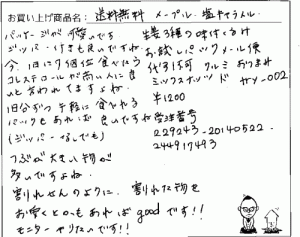 お買い上げ商品名: 送料無料 メープル・塩キャラメル
パッケージが可愛いです
ジッパー付きも良いですね。
今、1日に7個位食べたら
コレステロールが高い人に良い
と言われてますよね。
1日分ずつ手軽に食べれる
パックもあれば良いですね
(ジッパーなしでも)
つぶが大きい物が
多いですよね
割れせんのように、割れた物を
お安くとかもあればgoodです!!
モニターやりたいです!!
生 3種の味付くるみ
お試しパックメール便
代引不可 クルミ おつまみ
ミックスナッツ ド
¥1200
管理番号
229243-20140522.
244917493